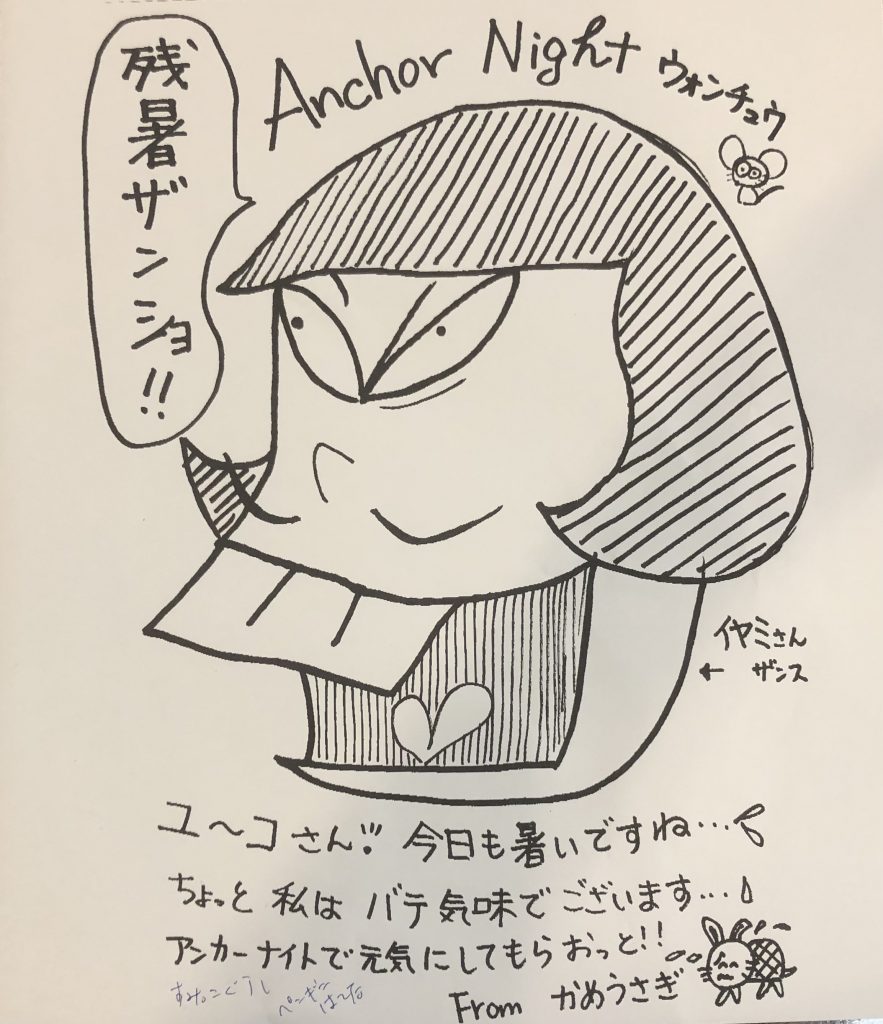 Anchor Night ウォンチュウ
残暑ザンショ!!
イヤミさん
← ザンス
ユ〜コさん!! 今日も暑いですね…
ちょっと 私は バテ気味でございます…
アンカーナイトで元気にしてもらおっと!!
From かめうさぎ